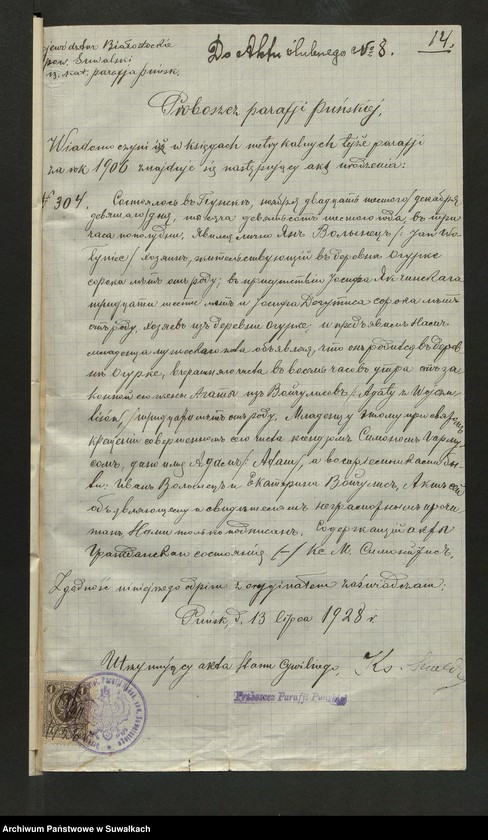 Do Aktu ślubnego № 8.
14.
Województwo Białostockie
pow. Suwalski
rz. kat. parafja Puńsk.
Proboszcz parafji puńskiej,
Wiadomo czyni iż w księgach metrykalnych tejże parafji
za rok 1906 znajduje się następujący akt urodzenia:
№ 304. Состоялось въ Пунскѣ, ноября двадцать шестого / декабря
девятаго / дня, тысяча девятьсотъ шестого года, въ три
часа пополудни. Явился лично Янъ Волынецъ /: Jan Wo-
łyniec /, хозяинъ, жительствующій въ деревнѣ Огурке,
сорока лѣтъ отъ роду; въ присутствіи Іосифа
тридцати шести лѣтъ и Іосифа сорока лѣтъ
отъ роду, хозяевъ изъ деревни Огурке; и предъявилъ Намъ
младенца мужескаго пола объявляя, что онъ родился въ дерев-
нѣ Огурке, вчерашняго числа въ восемь часовъ утра отъ за-
конной его жены Агаты изъ /: Agaty z
/ тридцати лѣтъ отъ роду. Младенцу этому при святомъ
крещеніи совершенномъ сего числа ксендзомъ
дано имя Адамъ /: Adam /, а воспріемниками бы-
ли: Иванъ Волынецъ и Екатерина Актъ сей
объявляющему и свидѣтелямъ неграмотнымъ прочи-
танъ Нами только подписанъ. Содержащій акты
гражданскаго состоянія (–) Кс. М.
Zgodność niniejszego odpisu z oryginałem zaświadczam:
Puńsk, d. 13 lipca 1928 r.
Utrzymujący akta Stanu Cywilnego, Ks.
Proboszcz Parafji Puńskiej
Archiwum Państwowe w Suwałkach